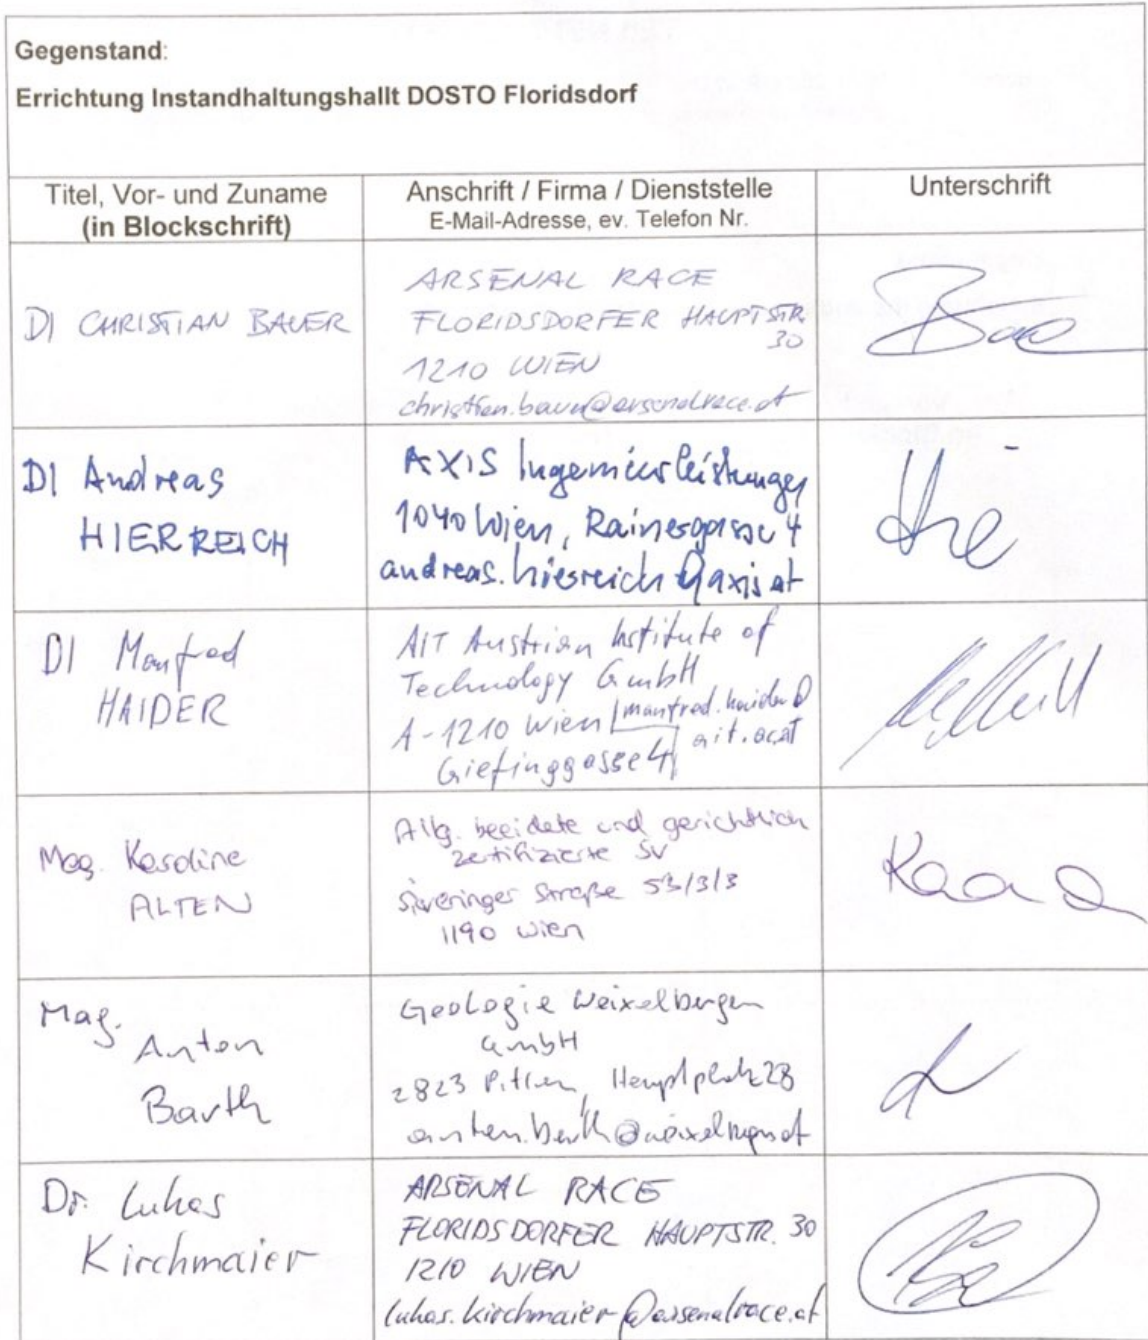 Gegenstand:
Errichtung Instandhaltungshallt DOSTO Floridsdorf
Titel, Vor- und Zuname
(in Blockschrift)
Anschrift / Firma / Dienststelle
E-Mail-Adresse, ev. Telefon Nr.
Unterschrift
DI CHRISTIAN BAUER
ARSENAL RACE
FLORIDSDORFER HAUPTSTR.
30
1210 WIEN
christian.bauer@arsenalrace.at
DI Andreas
HIERREICH
AXIS Ingenieurleistungen
1040 Wien, Rainergasse 4
andreas.hierreich@axis.at
DI Manfred
HAIDER
AIT Austrian Institute of
Technology GmbH
A-1210 Wien
Giefinggasse 4
manfred.haider@
ait.ac.at
Mag. Karoline
ALTEN
Allg. beeidete und gerichtlich
zertifizierte SV
Sieveringer Straße 53/3/3
1190 Wien
Mag.
Anton
Barth
Geologie Weixelberger
GmbH
2823 Pitten, Hauptplatz 28
Dr. Lukas
Kirchmaier
ARSENAL RACE
FLORIDSDORFER HAUPTSTR. 30
1210 WIEN
lukas.kirchmaier@arsenalrace.at